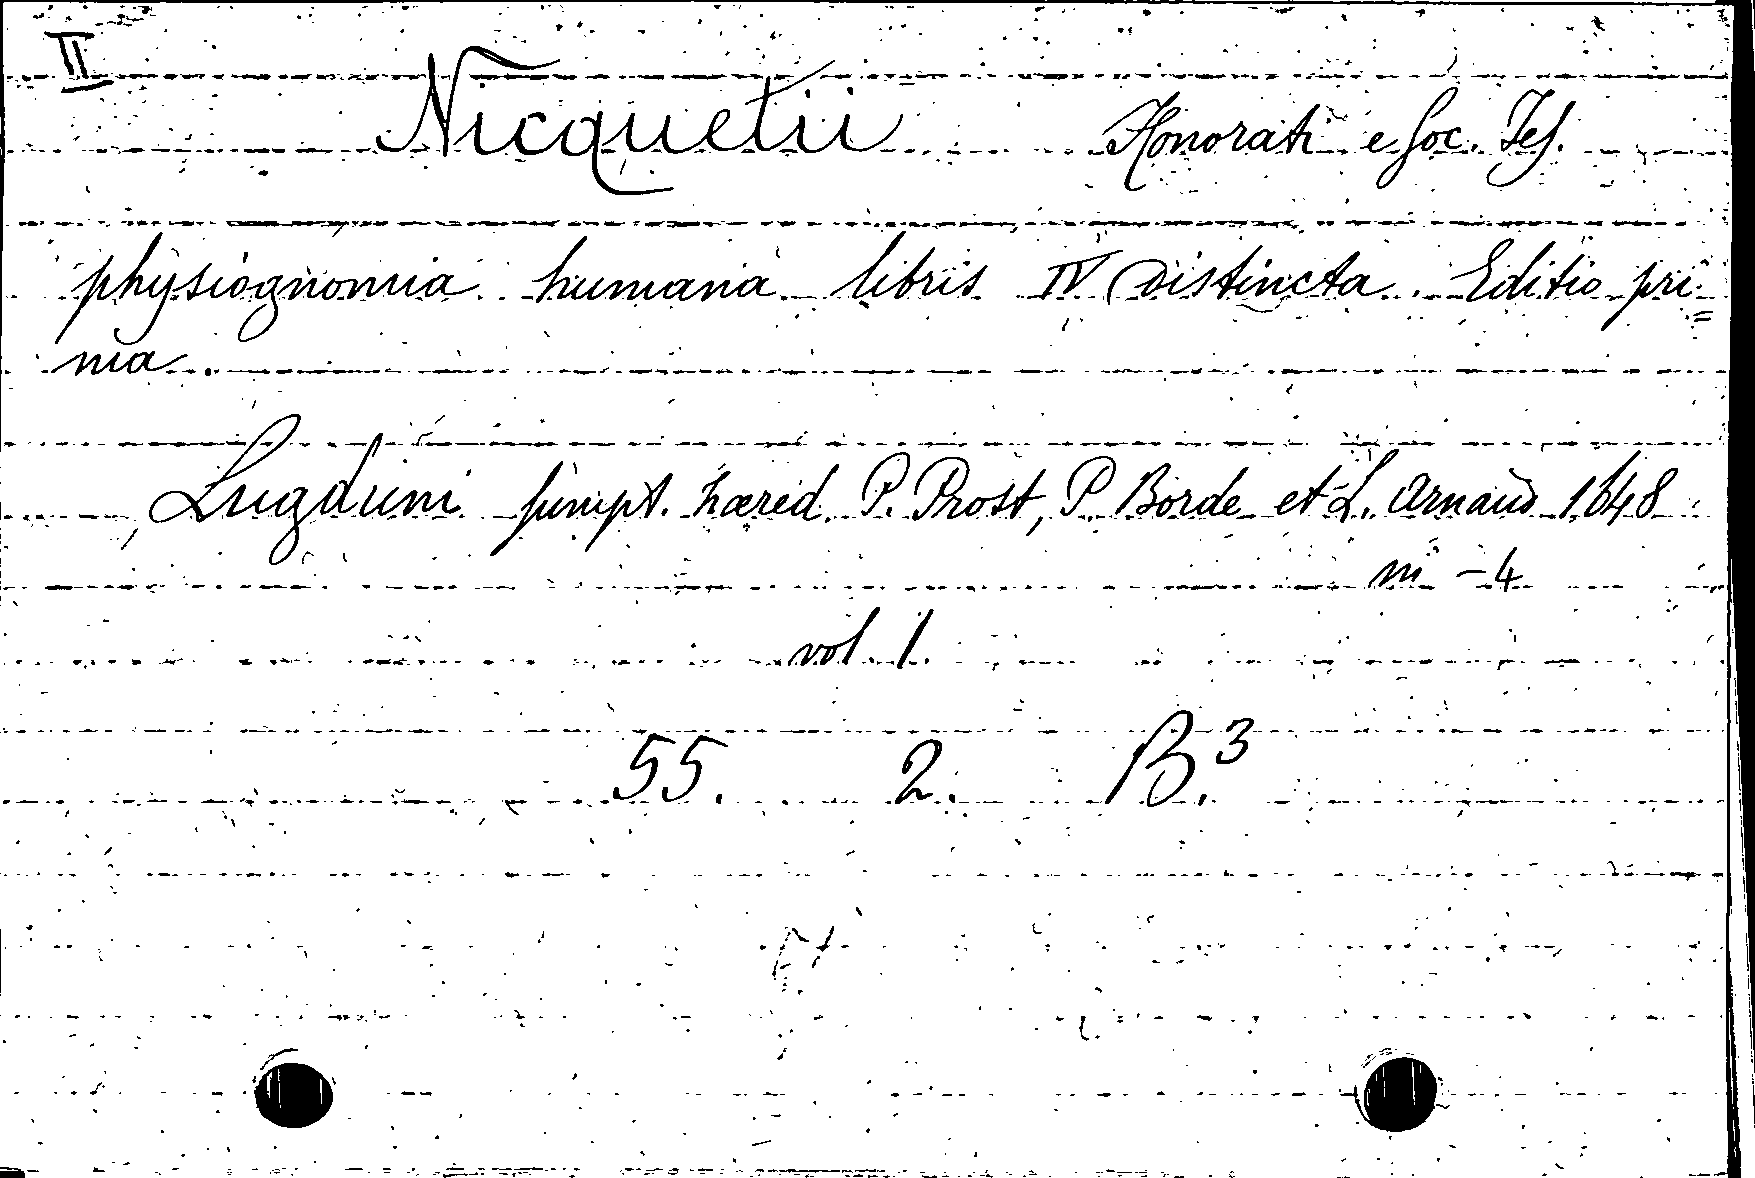 II
Nicquetii Honorati e Soc. Jes.
physiognomia humana libris IV distincta. Editio pri=
ma.
Lugduni sumpt. hæred. P. Prost, P. Borde et L. Arnaud 1648
in - 4
vol. 1.
55. 2. B.3